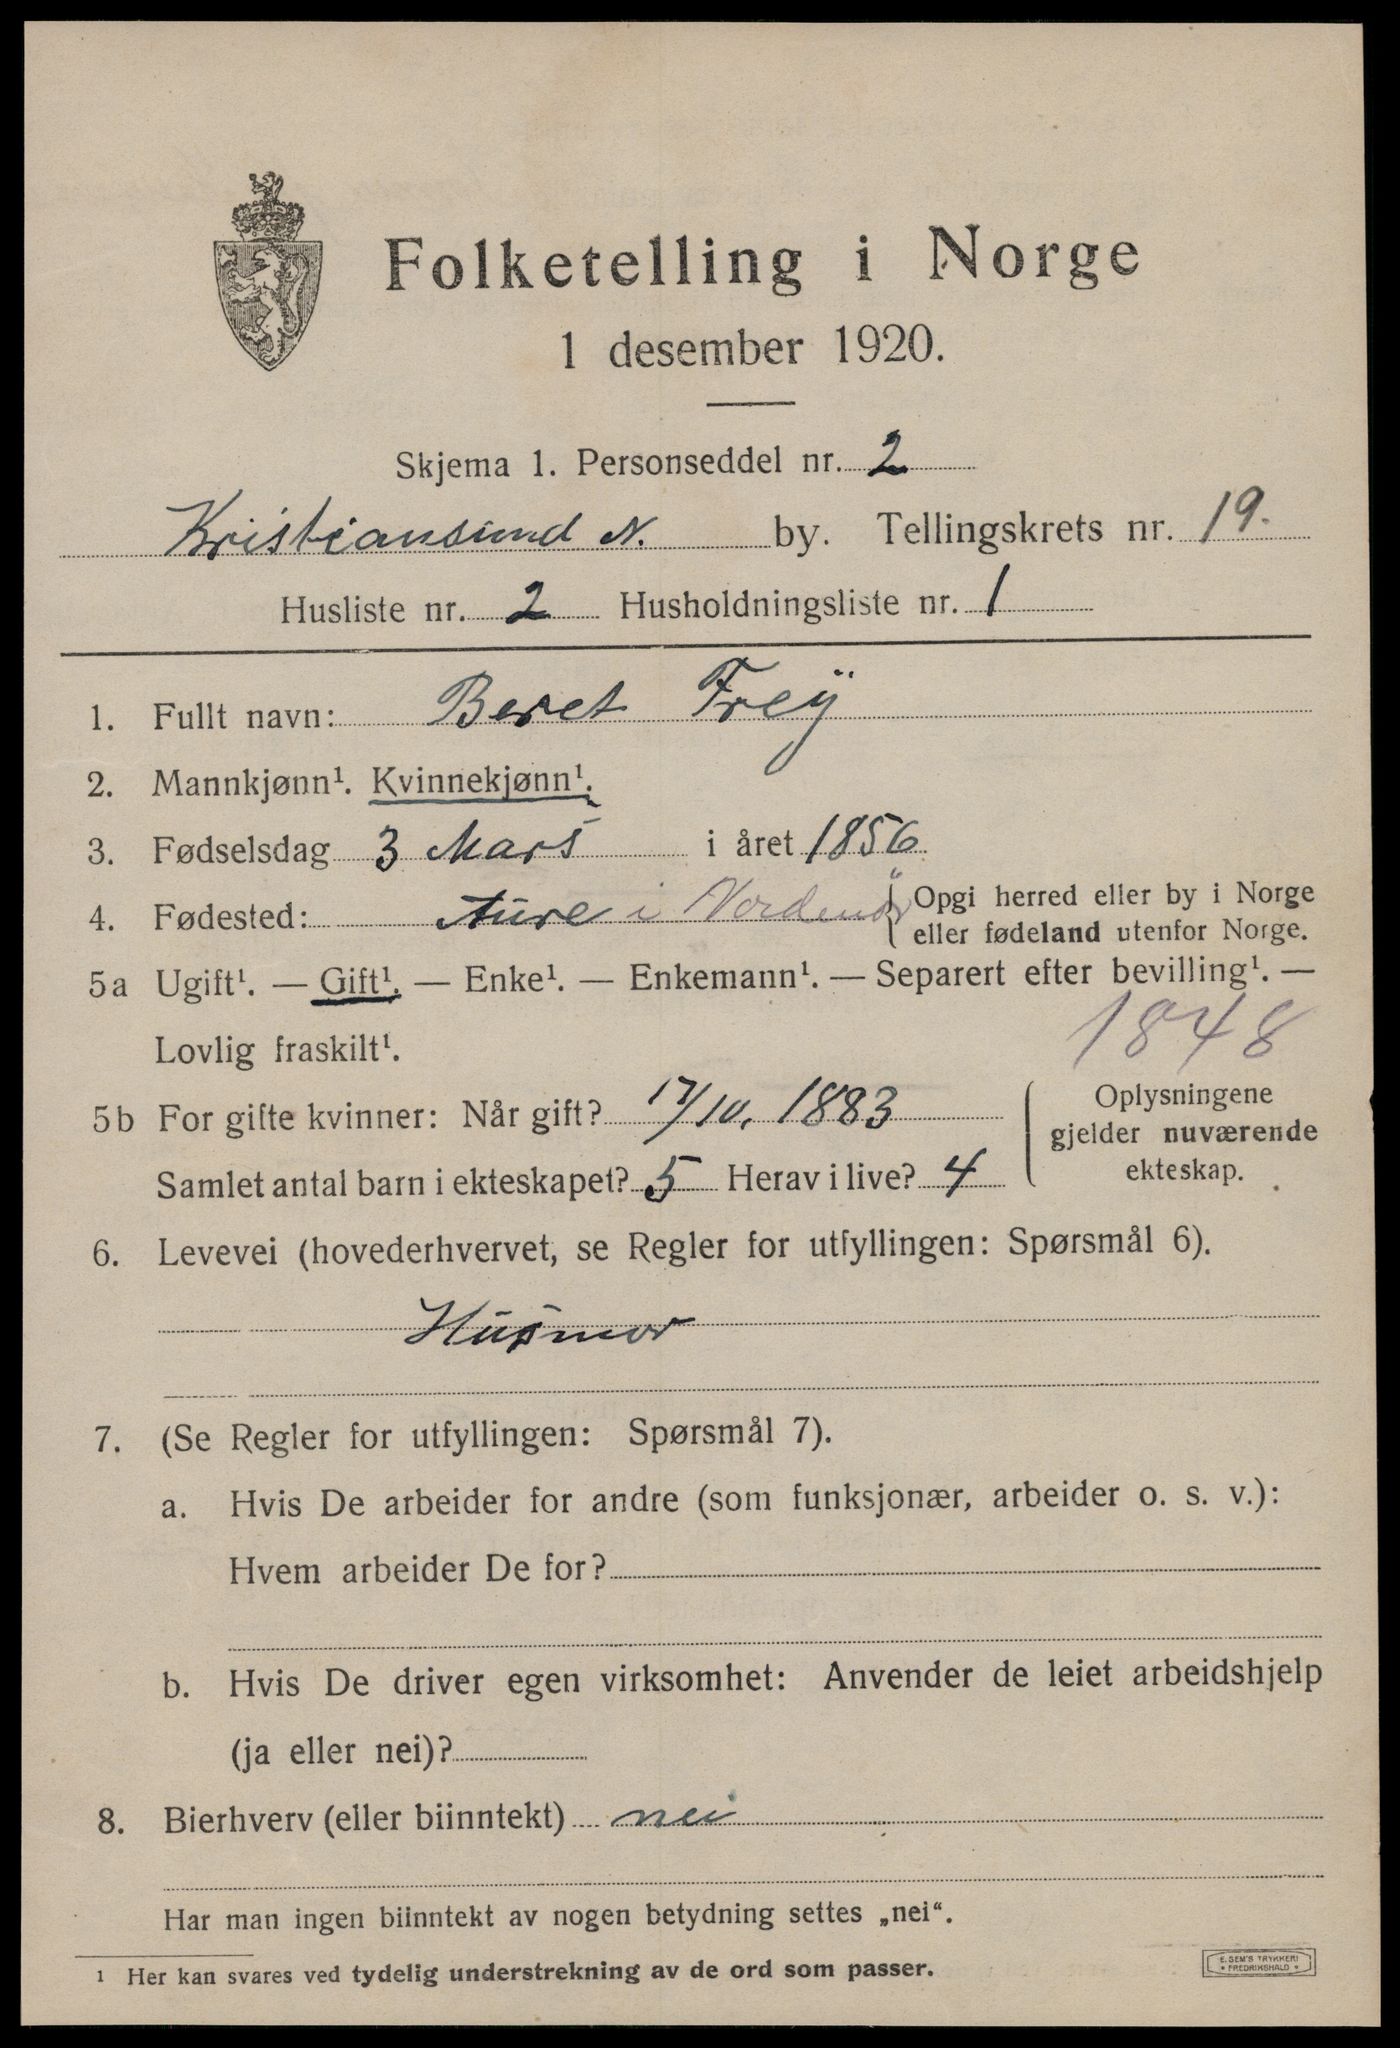 Folketelling i Norge
1 desember 1920.
Skjema 1. Personseddel nr. 2
Kristiansund N. by. Tellingskrets nr. 19.
Husliste nr. 2 Husholdningsliste nr. 1
1. Fullt navn: Beret Frey
2. Mannkjønn¹. Kvinnekjønn¹.
3. Fødselsdag 3 Mars i året 1856
4. Fødested: Aure i Nordmør { Opgi herred eller by i Norge
eller fødeland utenfor Norge.
5a Ugift¹. — Gift¹. — Enke¹. — Enkemann¹. — Separert efter bevilling¹. —
Lovlig fraskilt¹.
1848
5b For gifte kvinner: Når gift? 17/10. 1883
Samlet antal barn i ekteskapet? 5 Herav i live? 4
Oplysningene
gjelder nuværende
ekteskap.
6. Levevei (hovederhvervet, se Regler for utfyllingen: Spørsmål 6).
Husmor
7. (Se Regler for utfyllingen: Spørsmål 7).
a. Hvis De arbeider for andre (som funksjonær, arbeider o. s. v.):
Hvem arbeider De for?
b. Hvis De driver egen virksomhet: Anvender de leiet arbeidshjelp
(ja eller nei)?
8. Bierhverv (eller biinntekt) nei
Har man ingen biinntekt av nogen betydning settes „nei“.
¹ Her kan svares ved tydelig understrekning av de ord som passer.
E. SEM'S TRYKKERI
* FREDRIKSHALD *